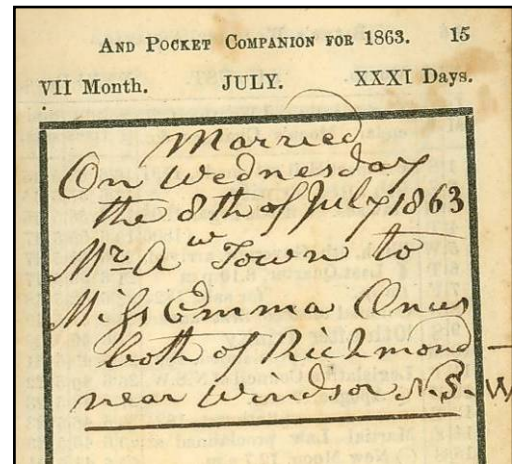 AND POCKET COMPANION FOR 1863. 15
VII Month. JULY. XXXI Days.
Married
On Wednesday
the 8th of July 1863
Mr A Wm Town to
Miss Emma Onus
both of Richmond
near Windsor N.S.W